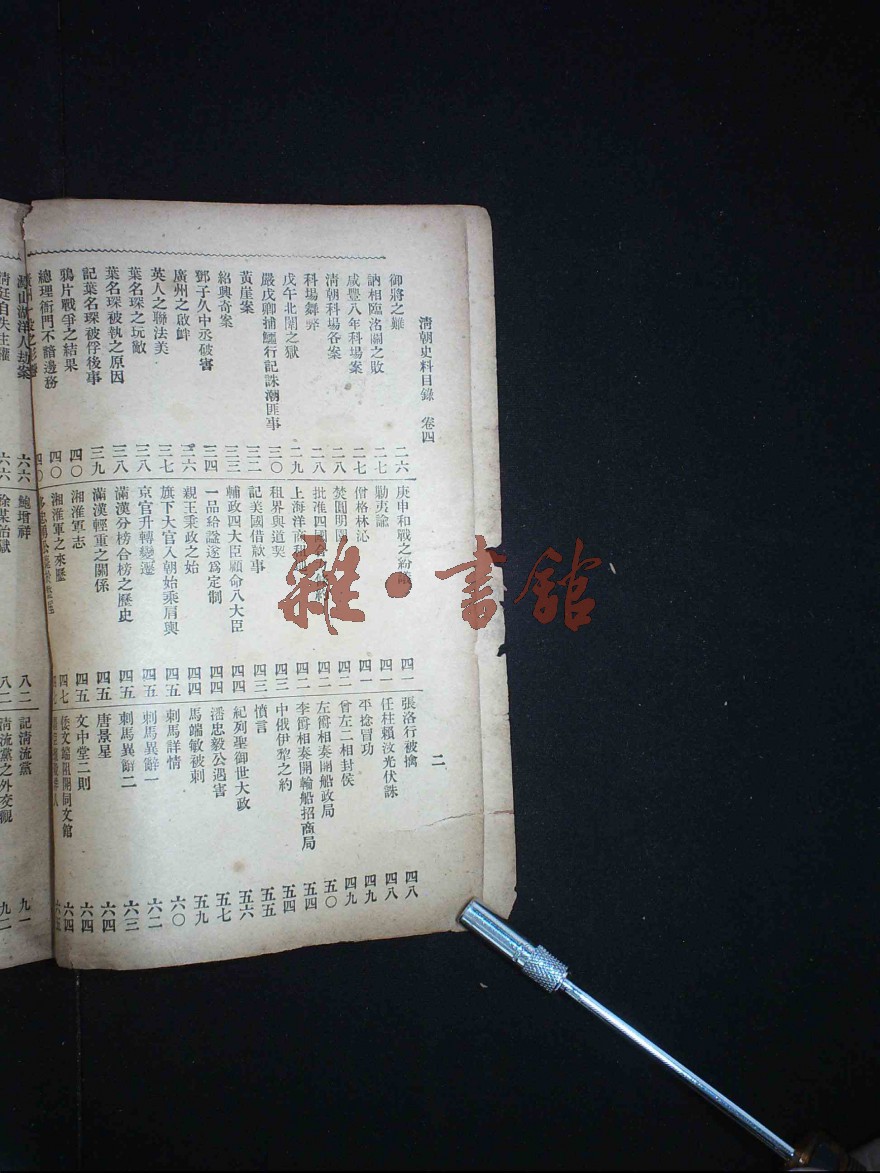 清朝史料目錄 卷四 二
御將之難 二六
訥相臨洺關之敗 二七
咸豐八年科場案 二七
清朝科場各案 二八
科場舞弊 二八
戊午北闈之獄 二九
嚴戊卿捕鱷行記誅潮匪事 三〇
黃崖案 三二
紹興奇案 三三
鄧子久中丞被害 三四
廣州之啟衅 三六
英人之聯法美 三七
葉名琛之玩敵 三八
葉名琛被執之原因 三八
記葉名琛被俘後事 三九
鴉片戰爭之結果 四〇
總理衙門不諳邊務 四〇
四〇
庚申和戰之紛 四一
勦夷諭 四一
僧格林沁 四一
焚圓明園 四二
批准四國 四二
上海洋商租 四二
租界與道契 四三
記美國借款事 四三
輔政四大臣顧命八大臣 四四
一品給諡遂爲定制 四四
親王秉政之始 四四
旗下大官入朝始乘肩輿 四五
京官升轉變遷 四五
滿漢分榜合榜之歷史 四五
滿漢輕重之關係 四五
湘淮軍志 四五
湘淮軍之來歷 四七
張洛行被擒 四八
任柱賴汶光伏誅 四八
平捻冒功 四九
曾左二相封侯 四九
左爵相奏開船政局 五〇
李爵相奏開輪船招商局 五四
中俄伊犁之約 五四
憤言 五五
紀列聖御世大政 五六
潘忠毅公遇害 五七
馬端敏被刺 五九
刺馬詳情 六〇
刺馬異辭一 六二
刺馬異辭二 六三
唐景星 六四
文中堂二則 六四
倭文端阻開同文館 六四
六五
洋人劫案 六六
清廷自失主權 六六
鮑增祥 八二
八二
記清流黨 九一
清流黨之外交觀 九二
雜·書館